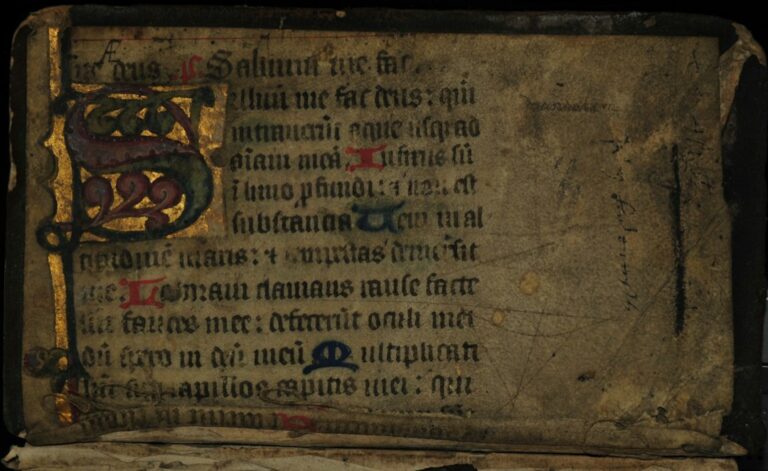 me deus ps Saluum me fac
Saluū me fac deus: qm̄
intrauerūt aque usq; ad
aīam meā. Infixus sū
ī limo ꝓfundi: ⁊ non est
substancia Veni in al
titudinē maris: ⁊ tempestas demersit
me. Laboraui clamans rause facte
sūt fauces mee: defecerūt oculi mei
dū spero in deū meū Multiplicati
sūt sup capillos capitis mei: qui